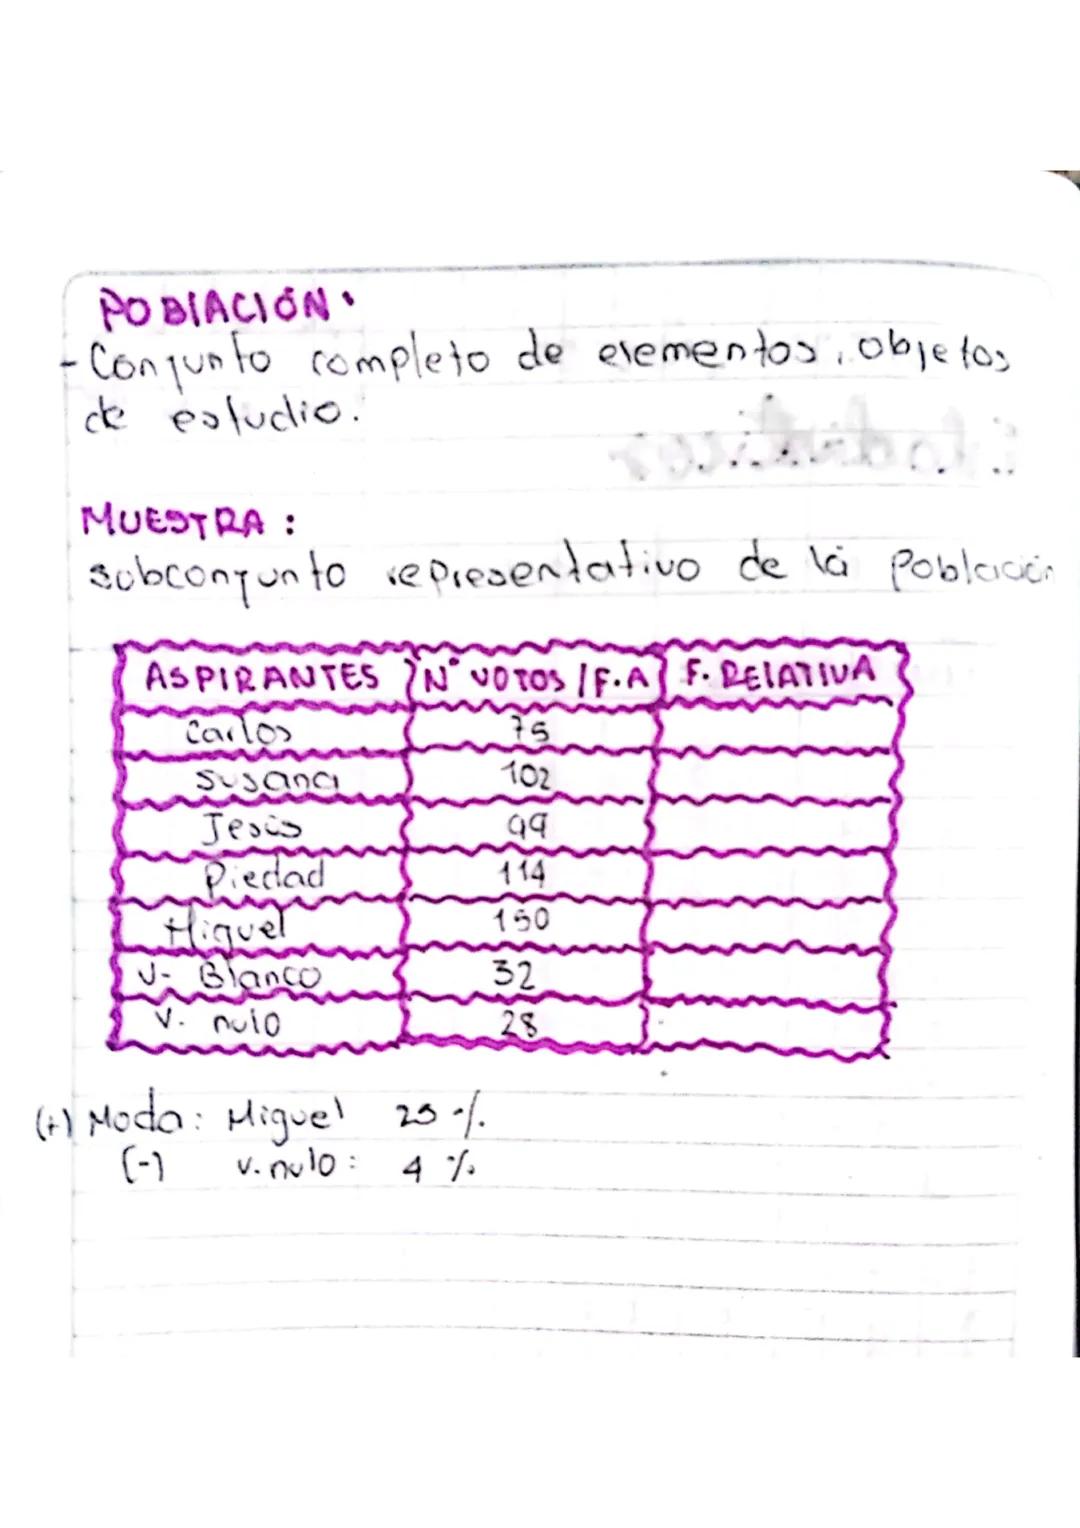 POBLACIÓN.
- Conjunto completo de elementos, objetos
de estudio.
MUESTRA:
subconjunto representativo de la población
ASPIRANTES N° VOTOS / F.A F. RELATIVA
Carlos 75
Susana 102
Jesús 99
Piedad 114
Miguel 150
V- Blanco 32
V. nulo 28
(+) Moda: Miguel 25 %.
(-) v. nulo: 4 %